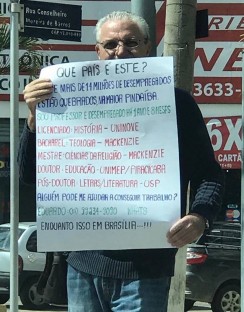 Rua Conselheiro
Moreira de Barros
QUE PAÍS É ESTE?
MAIS DE 14 MILHÕES DE DESEMPREGADOS
ESTÃO QUEBRADOS, NA MAIOR PINDAÍBA
SOU PROFESSOR E DESEMPREGADO HÁ 1 ANO E 8 MESES
LICENCIADO - HISTÓRIA - UNINOVE
BACHAREL - TEOLOGIA - MACKENZIE
MESTRE: CIÊNCIAS DA RELIGIÃO - MACKENZIE
DOUTOR: EDUCAÇÃO - UNIMEP/PIRACICABA
PÓS-DOUTOR: LETRAS/LITERATURA - USP
ALGUÉM PODE ME AJUDAR A CONSEGUIR TRABALHO?
EDUARDO
ENQUANTO ISSO EM BRASÍLIA---!!!
3633-
CARTÃ